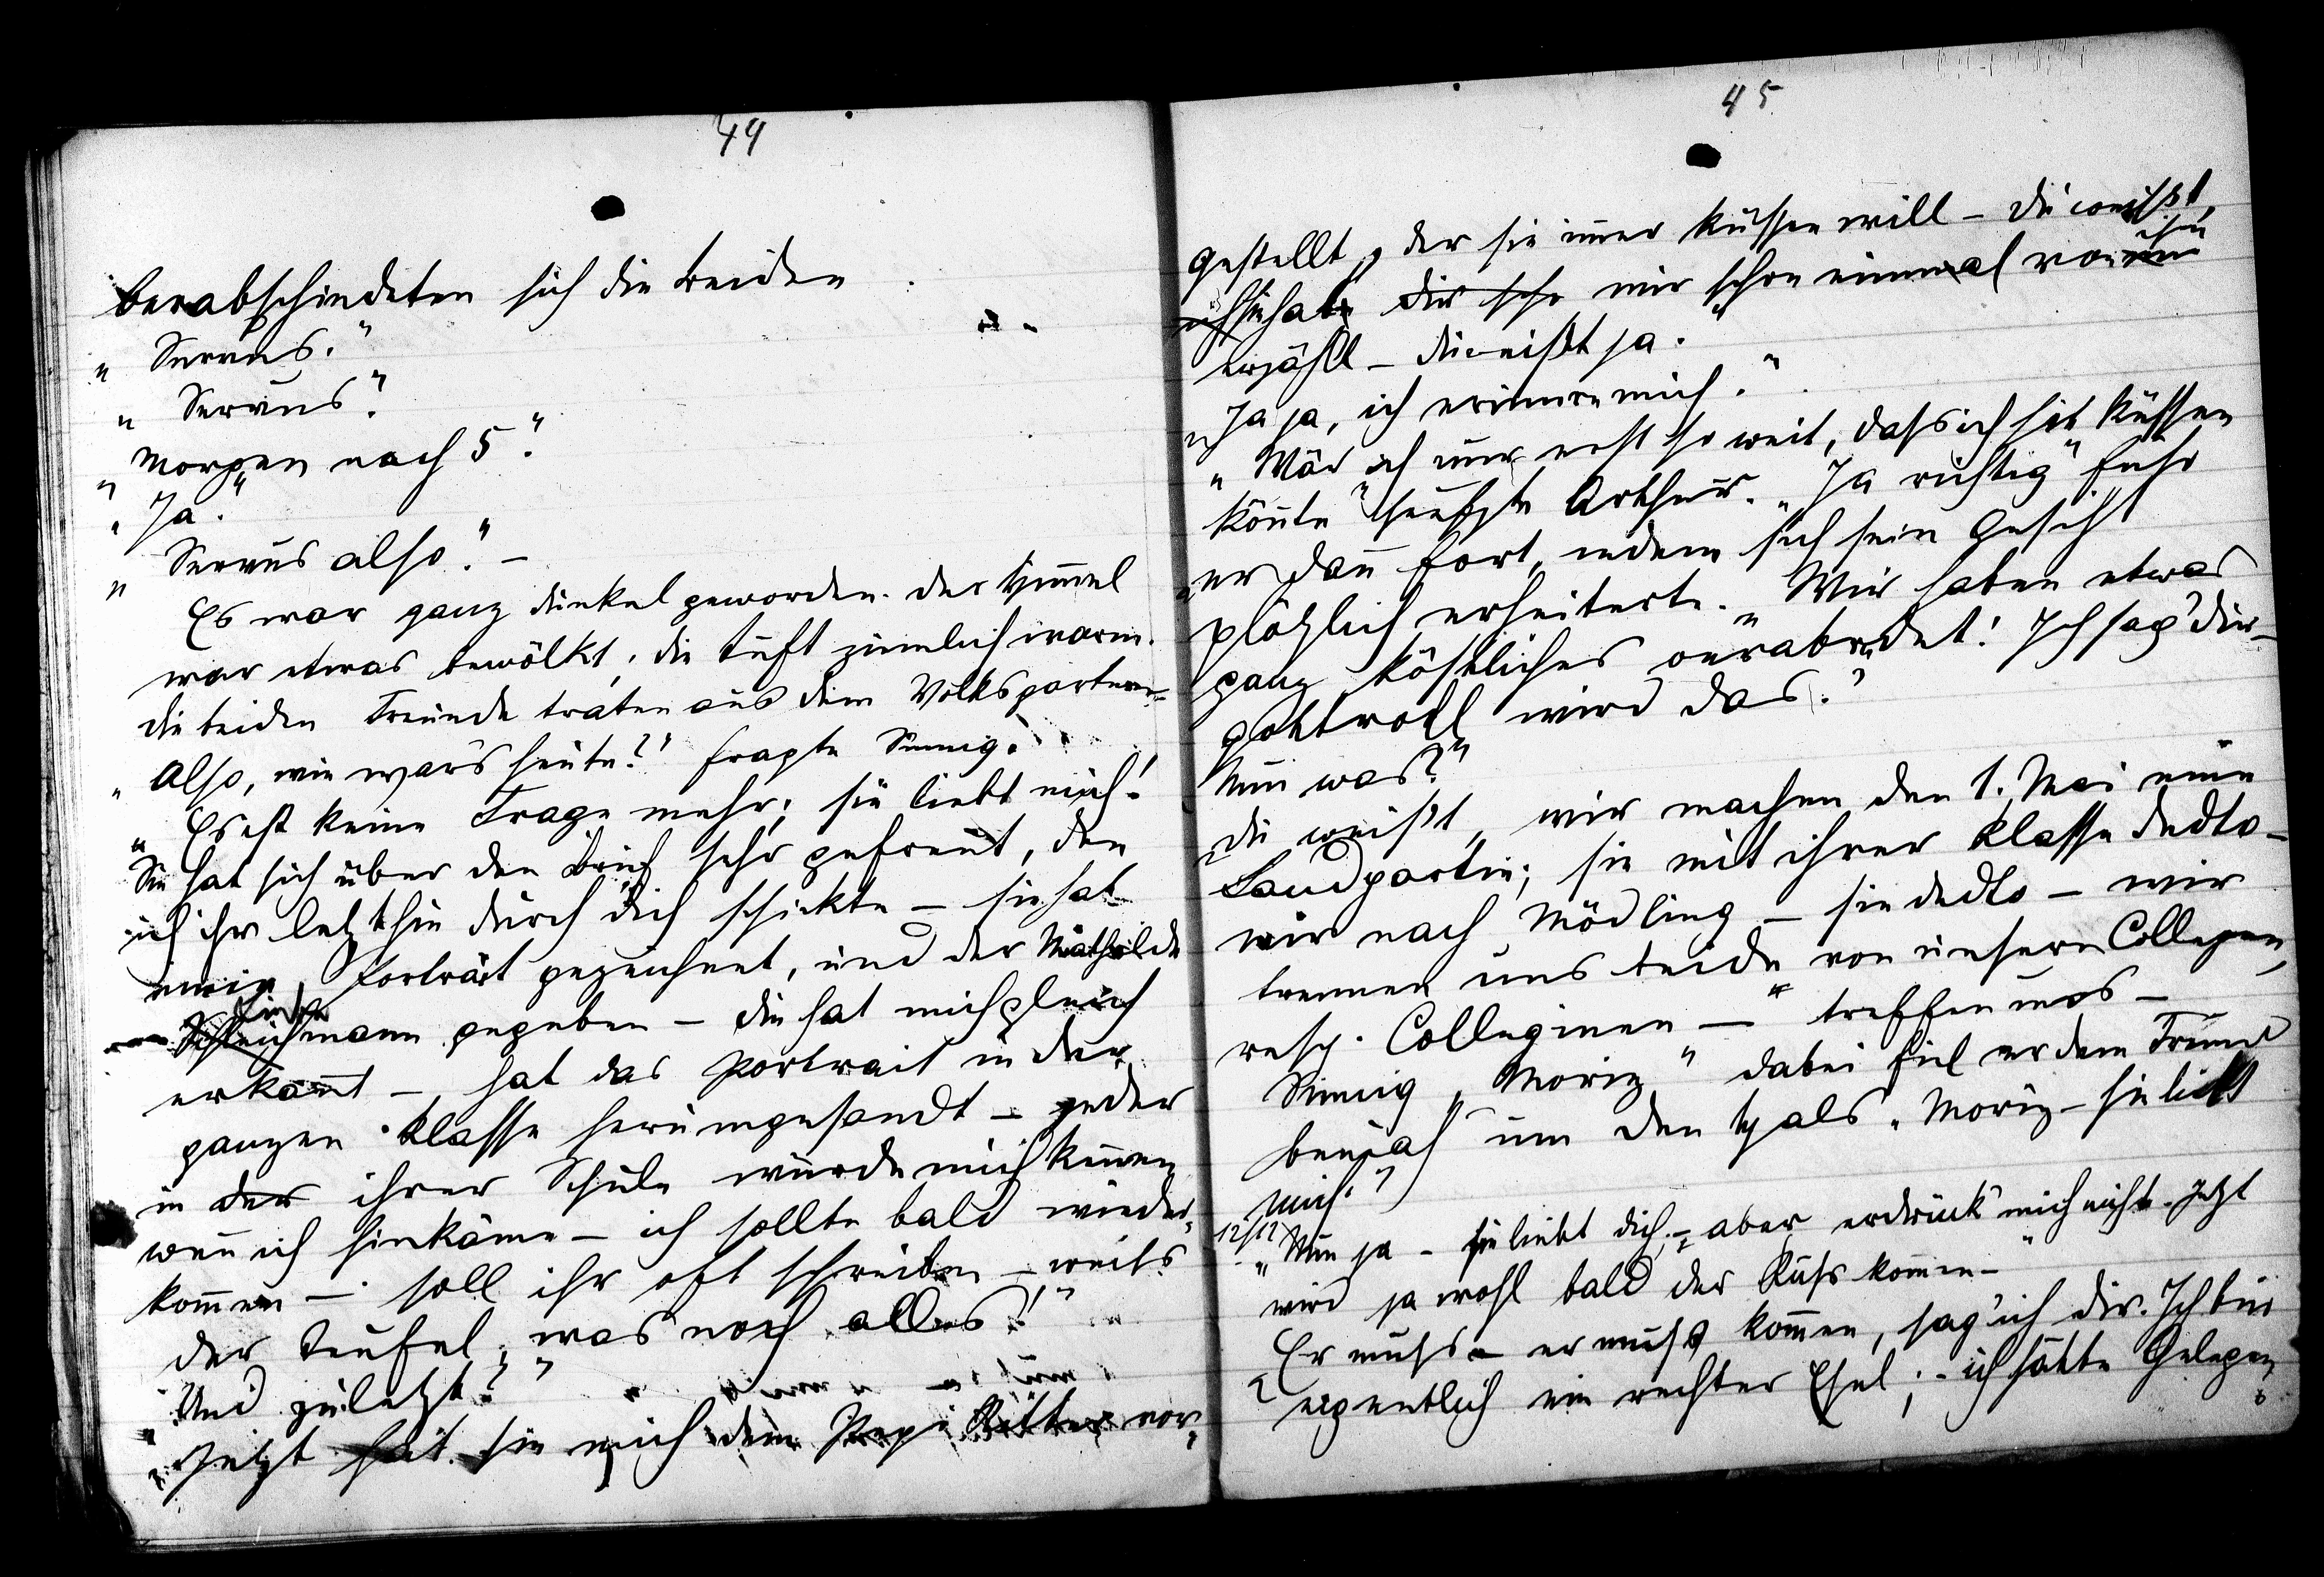 44
verabschiedeten sich die beiden
„Servus."
„Servus".
„Morgen nach 5".
„Ja."
„Servus also". –
Es war ganz dunkel geworden. Der Himmel
war etwas bewölkt; die Luft ziemlich warm.
Die beiden Freunde traten aus dem Volksgarten –
„Also, wie war's heute?" fragte
„Es ist keine Frage mehr; sie liebt mich!
Sie hat sich über den Brief sehr gefreut, den
ich ihr letzthin durch dich schickte – sie hat
mein Porträt gezeichnet, und der Mathilde
mann gegeben – die hat mich gleich
erkannt – hat das Portrait in der
ganzen Klasse herumgesandt – jeder
in der ihrer Schule würde mich kennen
wenn ich hinkäme – ich sollte bald wieder-
kommen – soll ihr oft schreiben – weiß
der Teufel, was noch alles!"
„Und zuletzt?"
„Jetzt hat sie mich dem Pepi Ritter vor-
45
gestellt, der sie immer küssen will – du weißt,
sie hat dir sch mir schon einmal von ihm
erzählt – du weißt ja."
„Ja ja, ich erinnere mich."
„Wär ich nur erst so weit, dass ich sie küssen
könnte" seufzte Arthur. „Ja richtig" fuhr
er dann fort, indem sich sein Gesicht
plötzlich erheiterte. „Wir haben etwas
ganz köstliches verabredet! Ich sag' dir –
gottvoll wird das."
„Nun was?"
„Du weißt, wir machen den 1. Mai eine
Landpartie; sie mit ihrer Klasse dedto –
wir nach Mödling – sie dedto – wir
trennen uns beide von unseren Collegen,
resp. Colleginen – treffen uns –
„Moriz" dabei fiel er dem Freund
beinah um den Hals „Moriz – sie liebt
mich."
12/12
„Nun ja – sie liebt dich, – aber erdrück' mich nicht. Jetzt
wird ja wohl bald der Kuss kommen –"
„Er muss – er muss kommen, sag' ich dir. Ich bin
eigentlich ein rechter Esel; – ich hätte Gelegen-